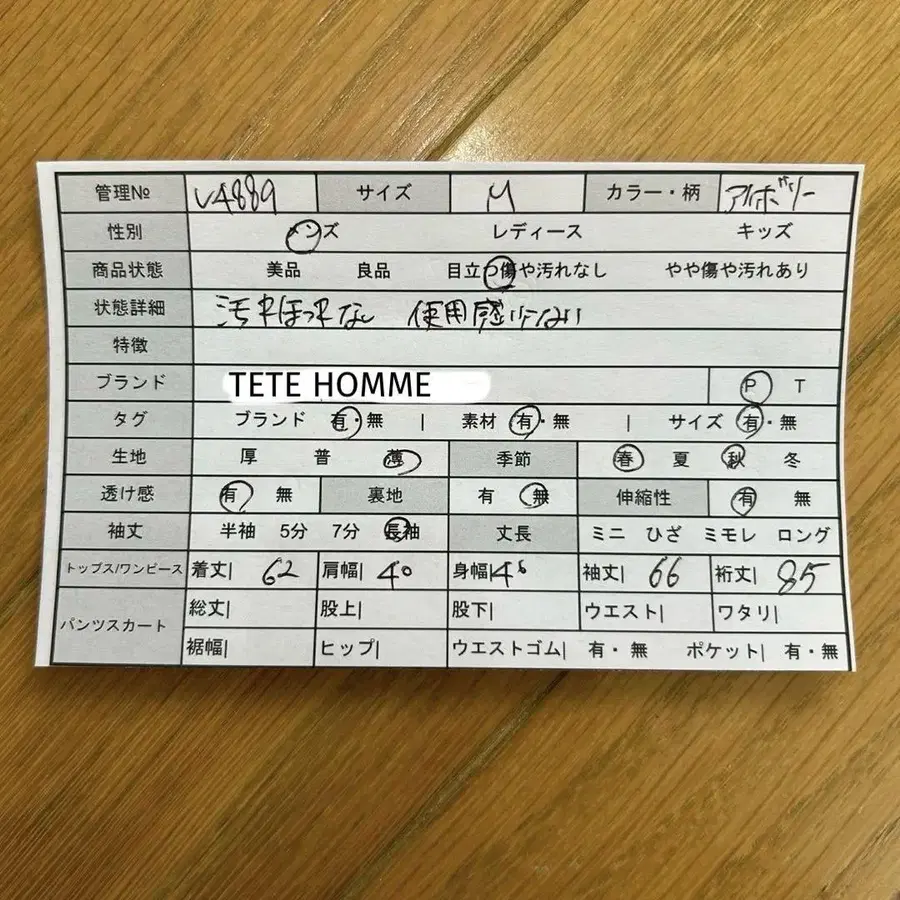 管理№ VA889 サイズ M カラー・柄 アイボリー
性別 メンズ レディース キッズ
商品状態 美品 良品 目立つ傷や汚れなし やや傷や汚れあり
状態詳細 汚れほつれなし 使用感
特徴
ブランド TETE HOMME P T
タグ ブランド 有・無 | 素材 有・無 | サイズ 有・無
生地 厚 普 薄 季節 春 夏 秋 冬
透け感 有 無 裏地 有 無 伸縮性 有 無
袖丈 半袖 5分 7分 長袖 丈長 ミニ ひざ ミモレ ロング
トップス/ワンピース 着丈| 62 肩幅| 40 身幅| 袖丈| 66 裄丈| 85
パンツスカート 総丈| 股上| 股下| ウエスト| ワタリ|
裾幅| ヒップ| ウエストゴム| 有・無 ポケット| 有・無